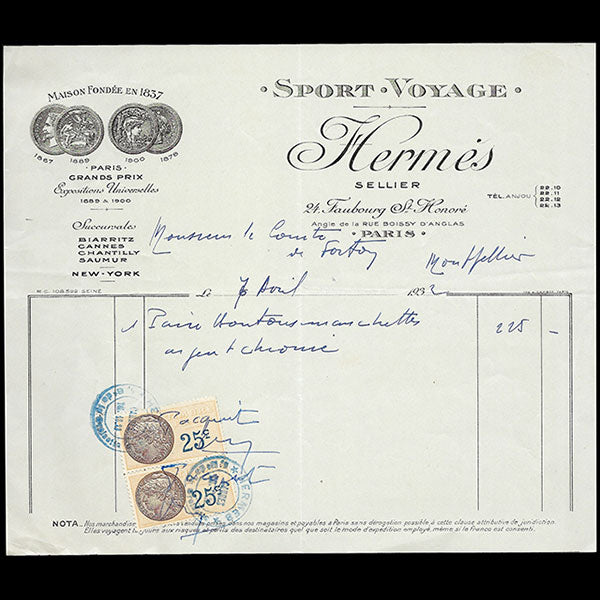 MAISON FONDÉE EN 1837
1867 1889 1900 1878
· PARIS ·
GRANDS PRIX
Expositions Universelles
1889 & 1900
Succursales
BIARRITZ
CANNES
CHANTILLY
SAUMUR
NEW-YORK
R.C. 108.599 SEINE
· SPORT · VOYAGE ·
Hermès
SELLIER
24, Faubourg St Honoré
Angle de la RUE BOISSY D'ANGLAS
· PARIS ·
TÉL. ANJOU
22.10
22.11
22.12
25.13
Monsieur le Comte
de
Montpellier
Le Avril 1932
1 Paire boutons manchettes 225 -
argent chromé
Pacquit
25c
25c
HERMÈS
NOTA._Nos marchandises vendues dans nos magasins et payables à Paris sans dérogation possible à cette clause attributive de juridiction.
Elles voyagent toujours aux risques et périls des destinataires quel que soit le mode d'expédition employé, même si le franco est consenti.